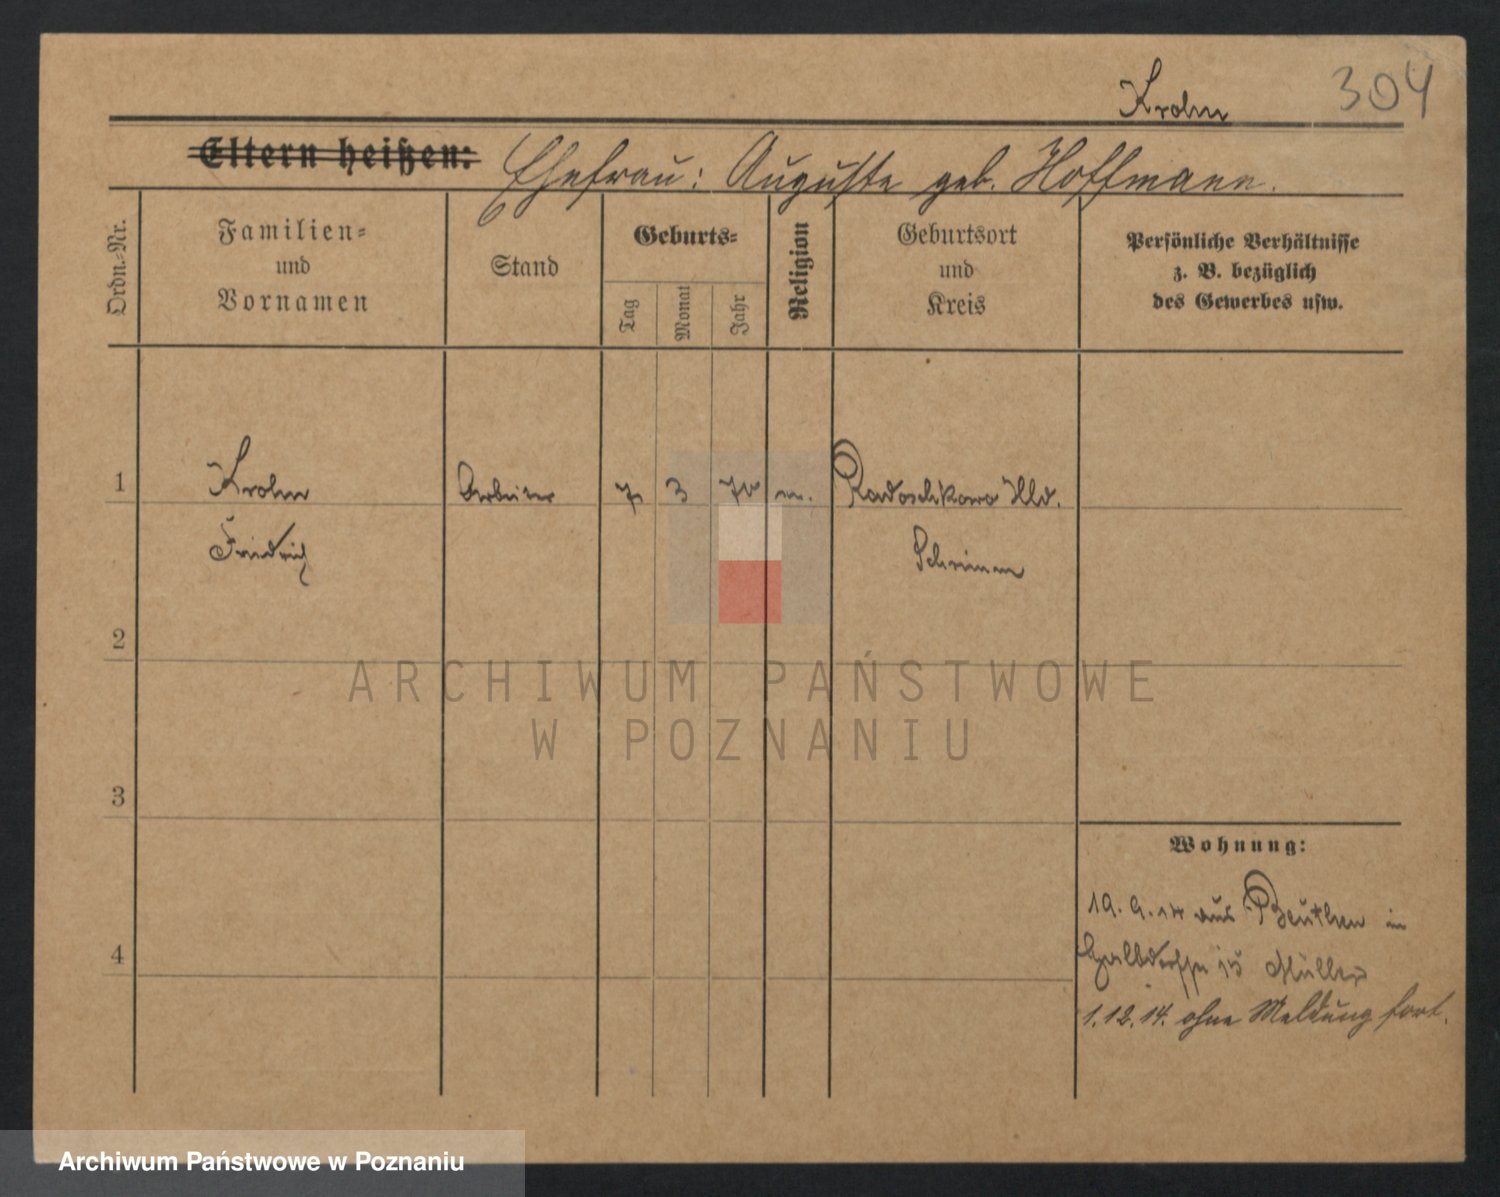 304
Krohn
Eltern heißen: Ehefrau: Auguste geb. Hoffmann.
Ordn.-Nr.
Familien-
und
Vornamen
Stand
Geburts-
Tag
Monat
Jahr
Religion
Geburtsort
und
Kreis
Persönliche Verhältnisse
z. B. bezüglich
des Gewerbes usw.
1 Krohn Arbeiter 7 3 70 Radoschkowo Hld.
Friedrich Schrimm
2
3
4
Wohnung:
19. 9. 14 aus Beuthen in
15 Müller
1. 12. 14. ohne Meldung fort.
ARCHIWUM PAŃSTWOWE
W POZNANIU
Archiwum Państwowe w Poznaniu